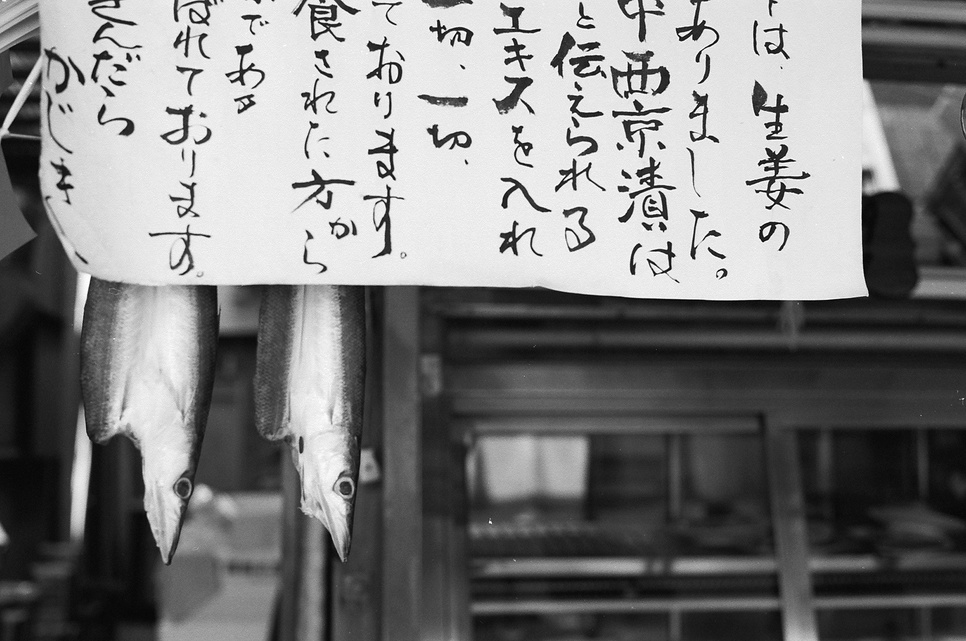 は、生姜の
ありました。
西京漬は
と伝えられる
エキスを入れ
一切、一切、
ております。
食された方から
であ
ばれております。
ぎんだら
かじき